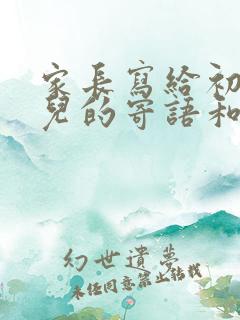 家長寫給初
兒的寄語和
幻世遺夢
未經同意禁止轉載